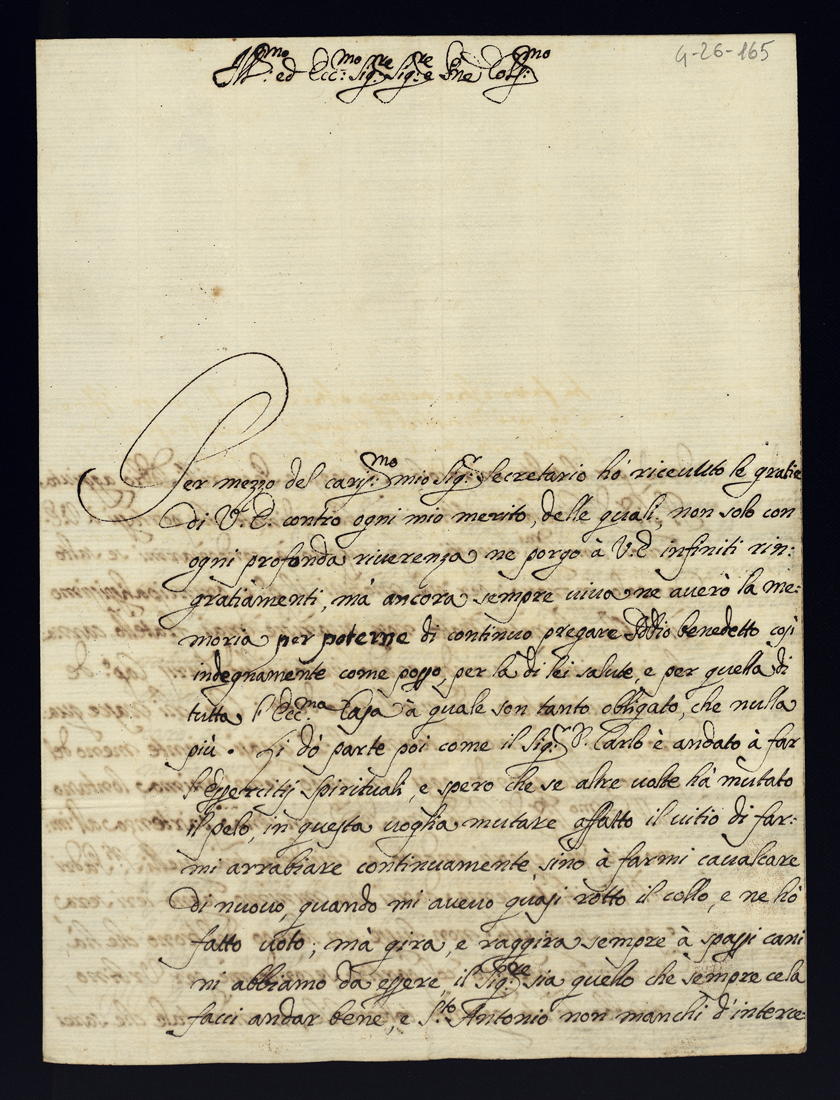 Ill:mo ed Ecc:mo Sig:re Sig:re e Pne Coll:mo
G-26-165
Per mezzo del cariss:mo mio Sig:r Secretario hò riceuuto le gratie
di V. E. contro ogni mio merito, delle quali, non solo con
ogni profonda riverenza ne porgo à V. E infiniti rin:
gratiamenti, mà ancora sempre viva ne auerò la me:
moria per poterne di continuo pregare Iddio benedetto così
indegnamente come posso, per la di lei salute, e per quella di
tutta l'Ecc:ma Casa à quale son tanto obligato, che nulla
più. Li dò parte poi come il Sig:r D. Carlo è andato à far
l'Essercitij Spirituali, e spero che se altre uolte hà mutato
il pelo, in questa uoglia mutare affatto il uitio di far:
mi arrabiare continuamente, sino à farmi caualcare
di nuouo, quando mi aveuo quasi rotto il collo, e ne hò
fatto uoto; mà gira, e raggira sempre à spassi cani
ni abbiamo da essere, il Sig:re sia quello che sempre ce la
facci andar bene, e S:to Antonio non manchi d'interce: